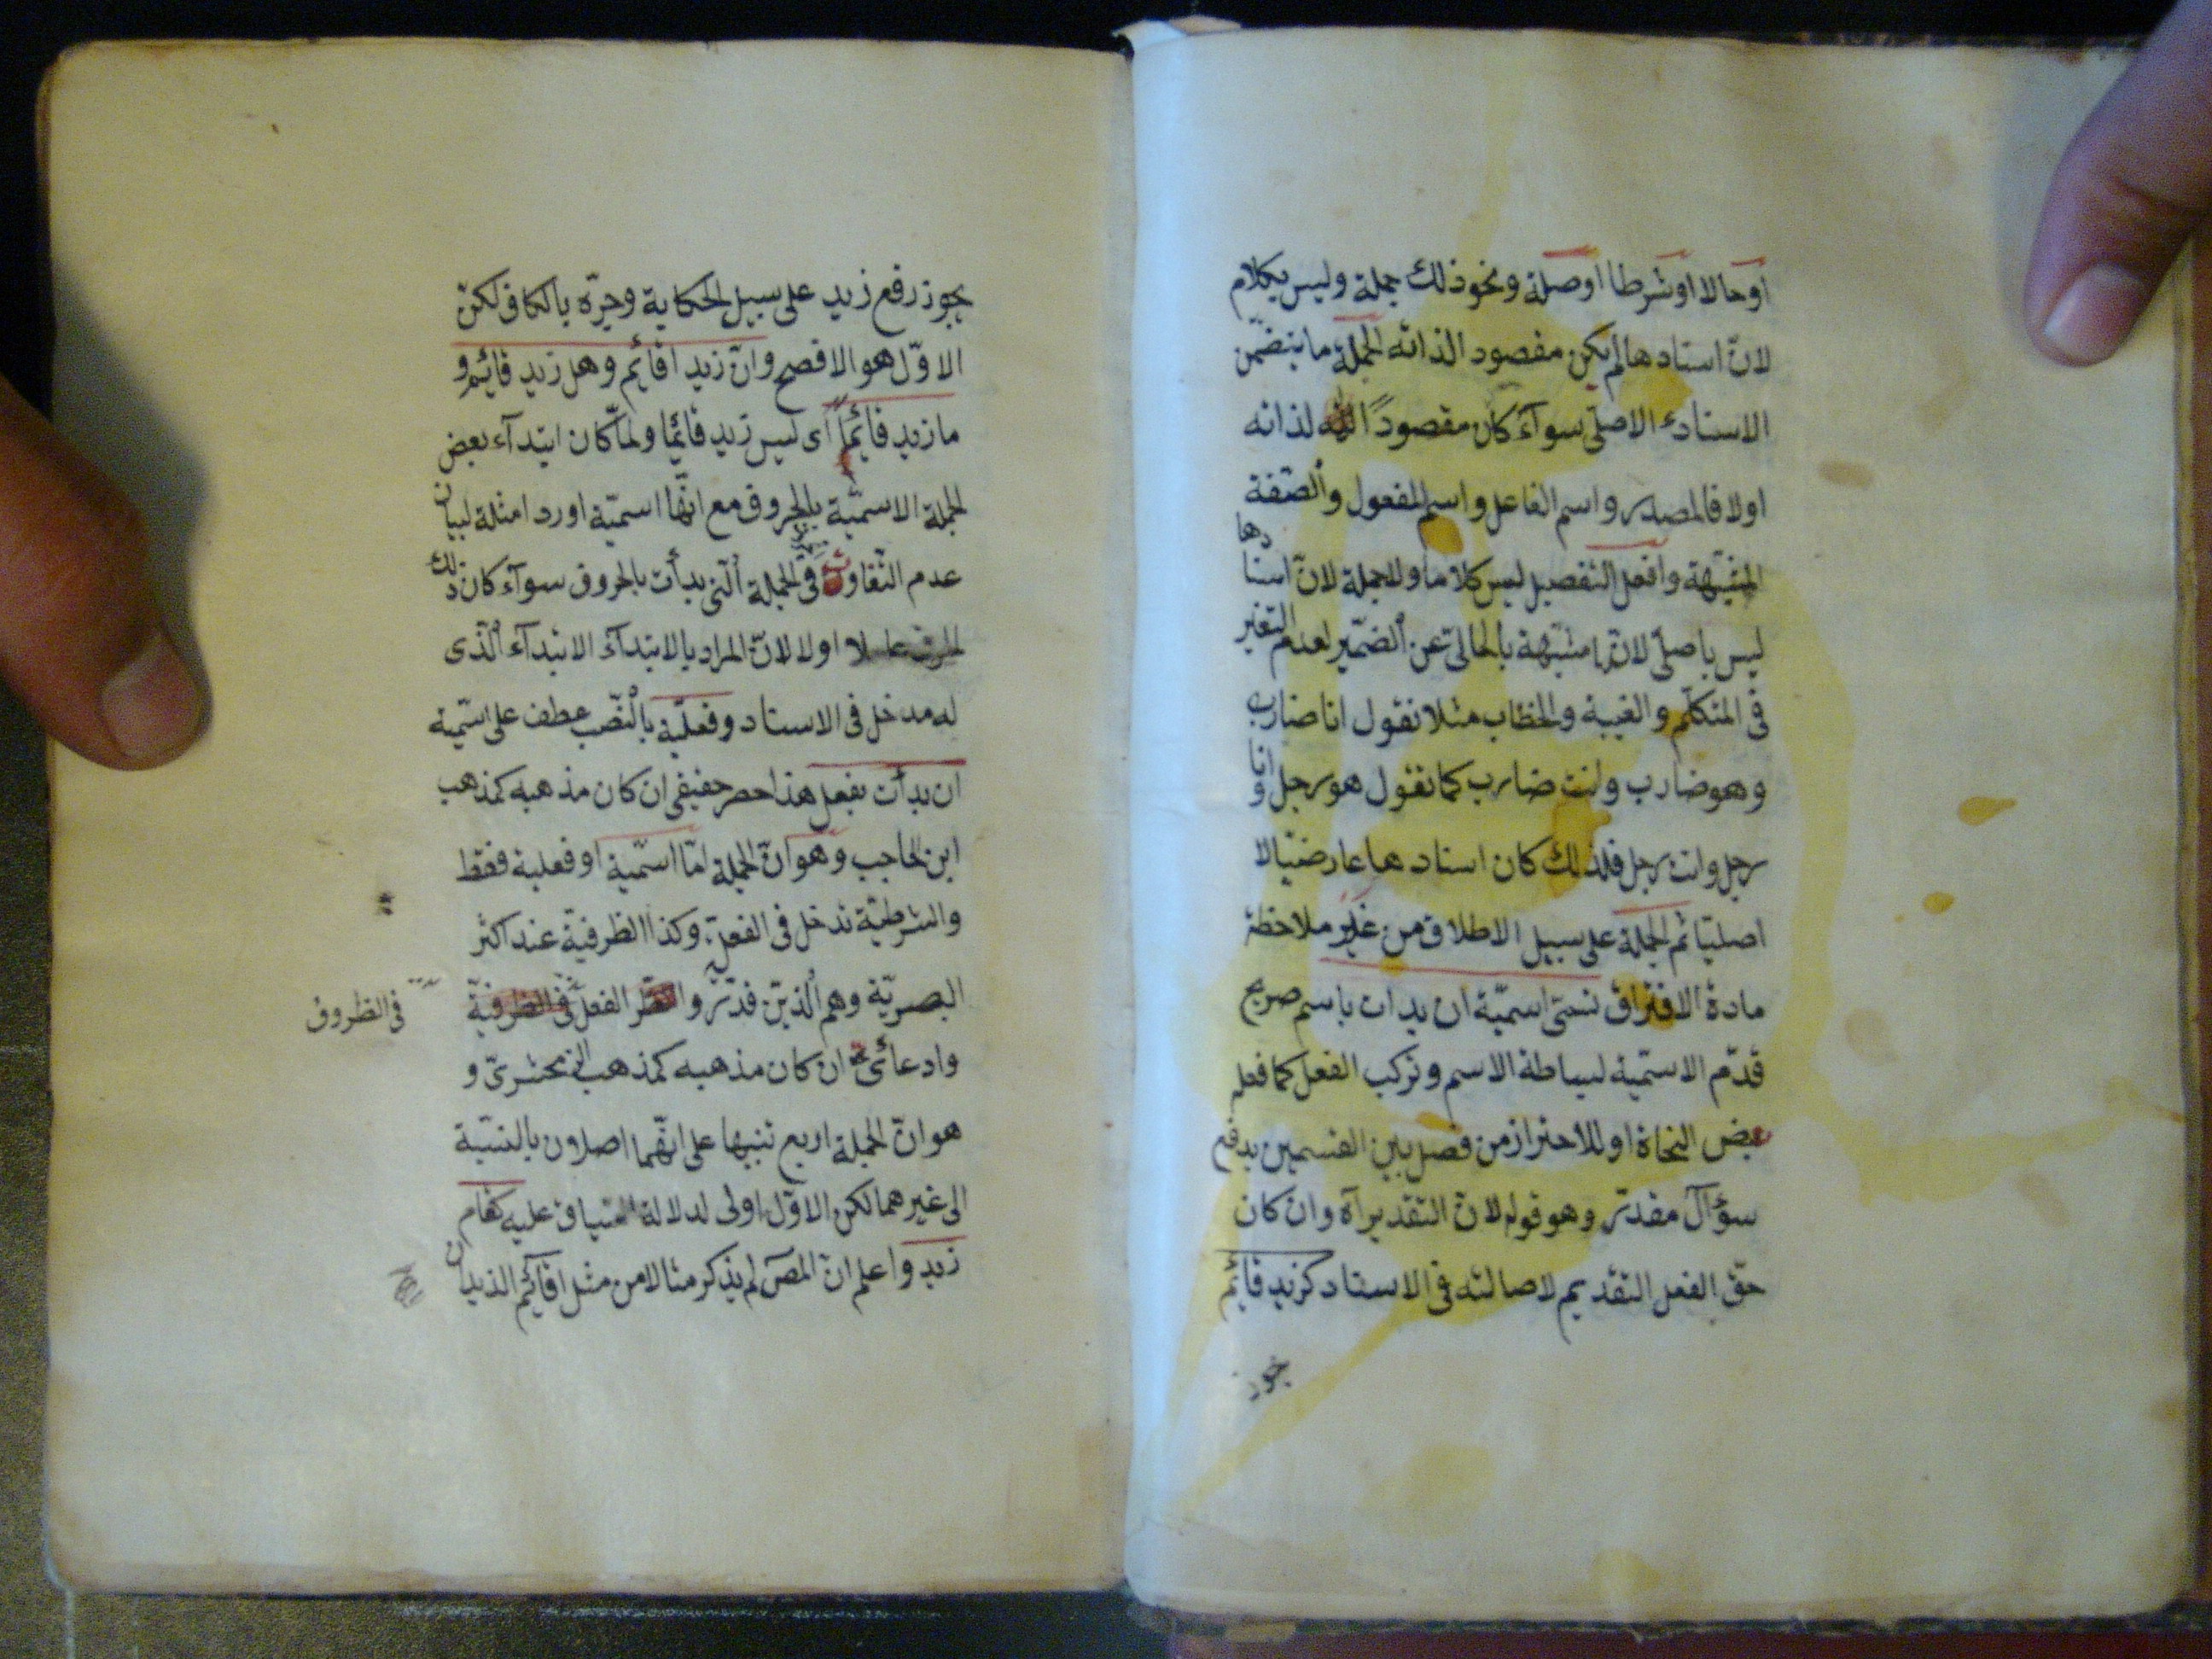 اوحالا اوشرطا اوصلة ونحوذلك جملة وليس بكلام
لانّ اسنادها لم يكن مقصود الذاته الجملة ما يتضمّن
الاسناد الاصلى سوآء كان مقصودًا لذاته
اولا فالمصدر واسم الفاعل واسم المفعول والصّفة
المشبّهة وافعل التفصيل ليس كلاما ولاجملة لانّ اسنادها
ليس باصلىّ لانّها مشبّهة بالخالى عن الضّمير لعدم التغير
فى المتكلّم والغيبة والخطاب مثلا تقول انا ضارب
وهو ضارب وانت ضارب كما تقول هو رجل وانا
رجل وانت رجل فلذلك كان اسنادها عارضيّا لا
اصليّا ثم الجملة على سبيل الاطلاق من غير ملاحظة
مادة الافتراق تسمّى اسميّة ان بدات باسم صريح
قدّم الاسمّية لبساطة الاسم وتركب الفعل كما فعله
بعض النحاة او للاحتراز من فصل بين القسمين يدفع
سؤال مقدّر وهو قوله لانّ التقدير آه وان كان
حقّ الفعل التقديم لاصالته فى الاسناد كزيد قائم
يجوز
يجوز رفع زيد على سبيل الحكاية وجرّه بالكاف لكنّ
الاوّل هو الافصح وانّ زيدا قائم وهل زيد قائم و
ما زيد قائمًا اى ليس زيد قائما ولمّا كان ابتدآء بعض
الجملة الاسميّة بالحروف مع انّها اسميّة اورد امثلة لبيان
عدم التّفاوت فى الجملة الّتى بدأت بالحروف سوآء كان ذلك
الحرف عاملا اولا لانّ المراد بالابتدآء الابتدآء الّذى
له مدخل فى الاسناد وفعليّة بالنّصب عطف على اسمّية
ان بدأت بفعل هذا حصر حقيقى ان كان مذهبه كمذهب
ابن الحاجب وهو انّ الجملة امّا اسمّية او فعلية فقط
والشرطيّة تدخل فى الفعليّة وكذا الظرفيّة عند اكثر
البصريّة وهم الّذين قدّروا الفعل
فى الظروف
وادعائىّ ان كان مذهبه كمذهب الزمحشرىّ و
هو انّ الجملة اربع تنبيها على انّهما اصلان بالنسبة
الى غيرهما لكن الاوّل اولى لدلالة السّياق عليه كقام
زيد واعلم انّ المصّ لم يذكر مثالا من مثل اقائم الزيدان